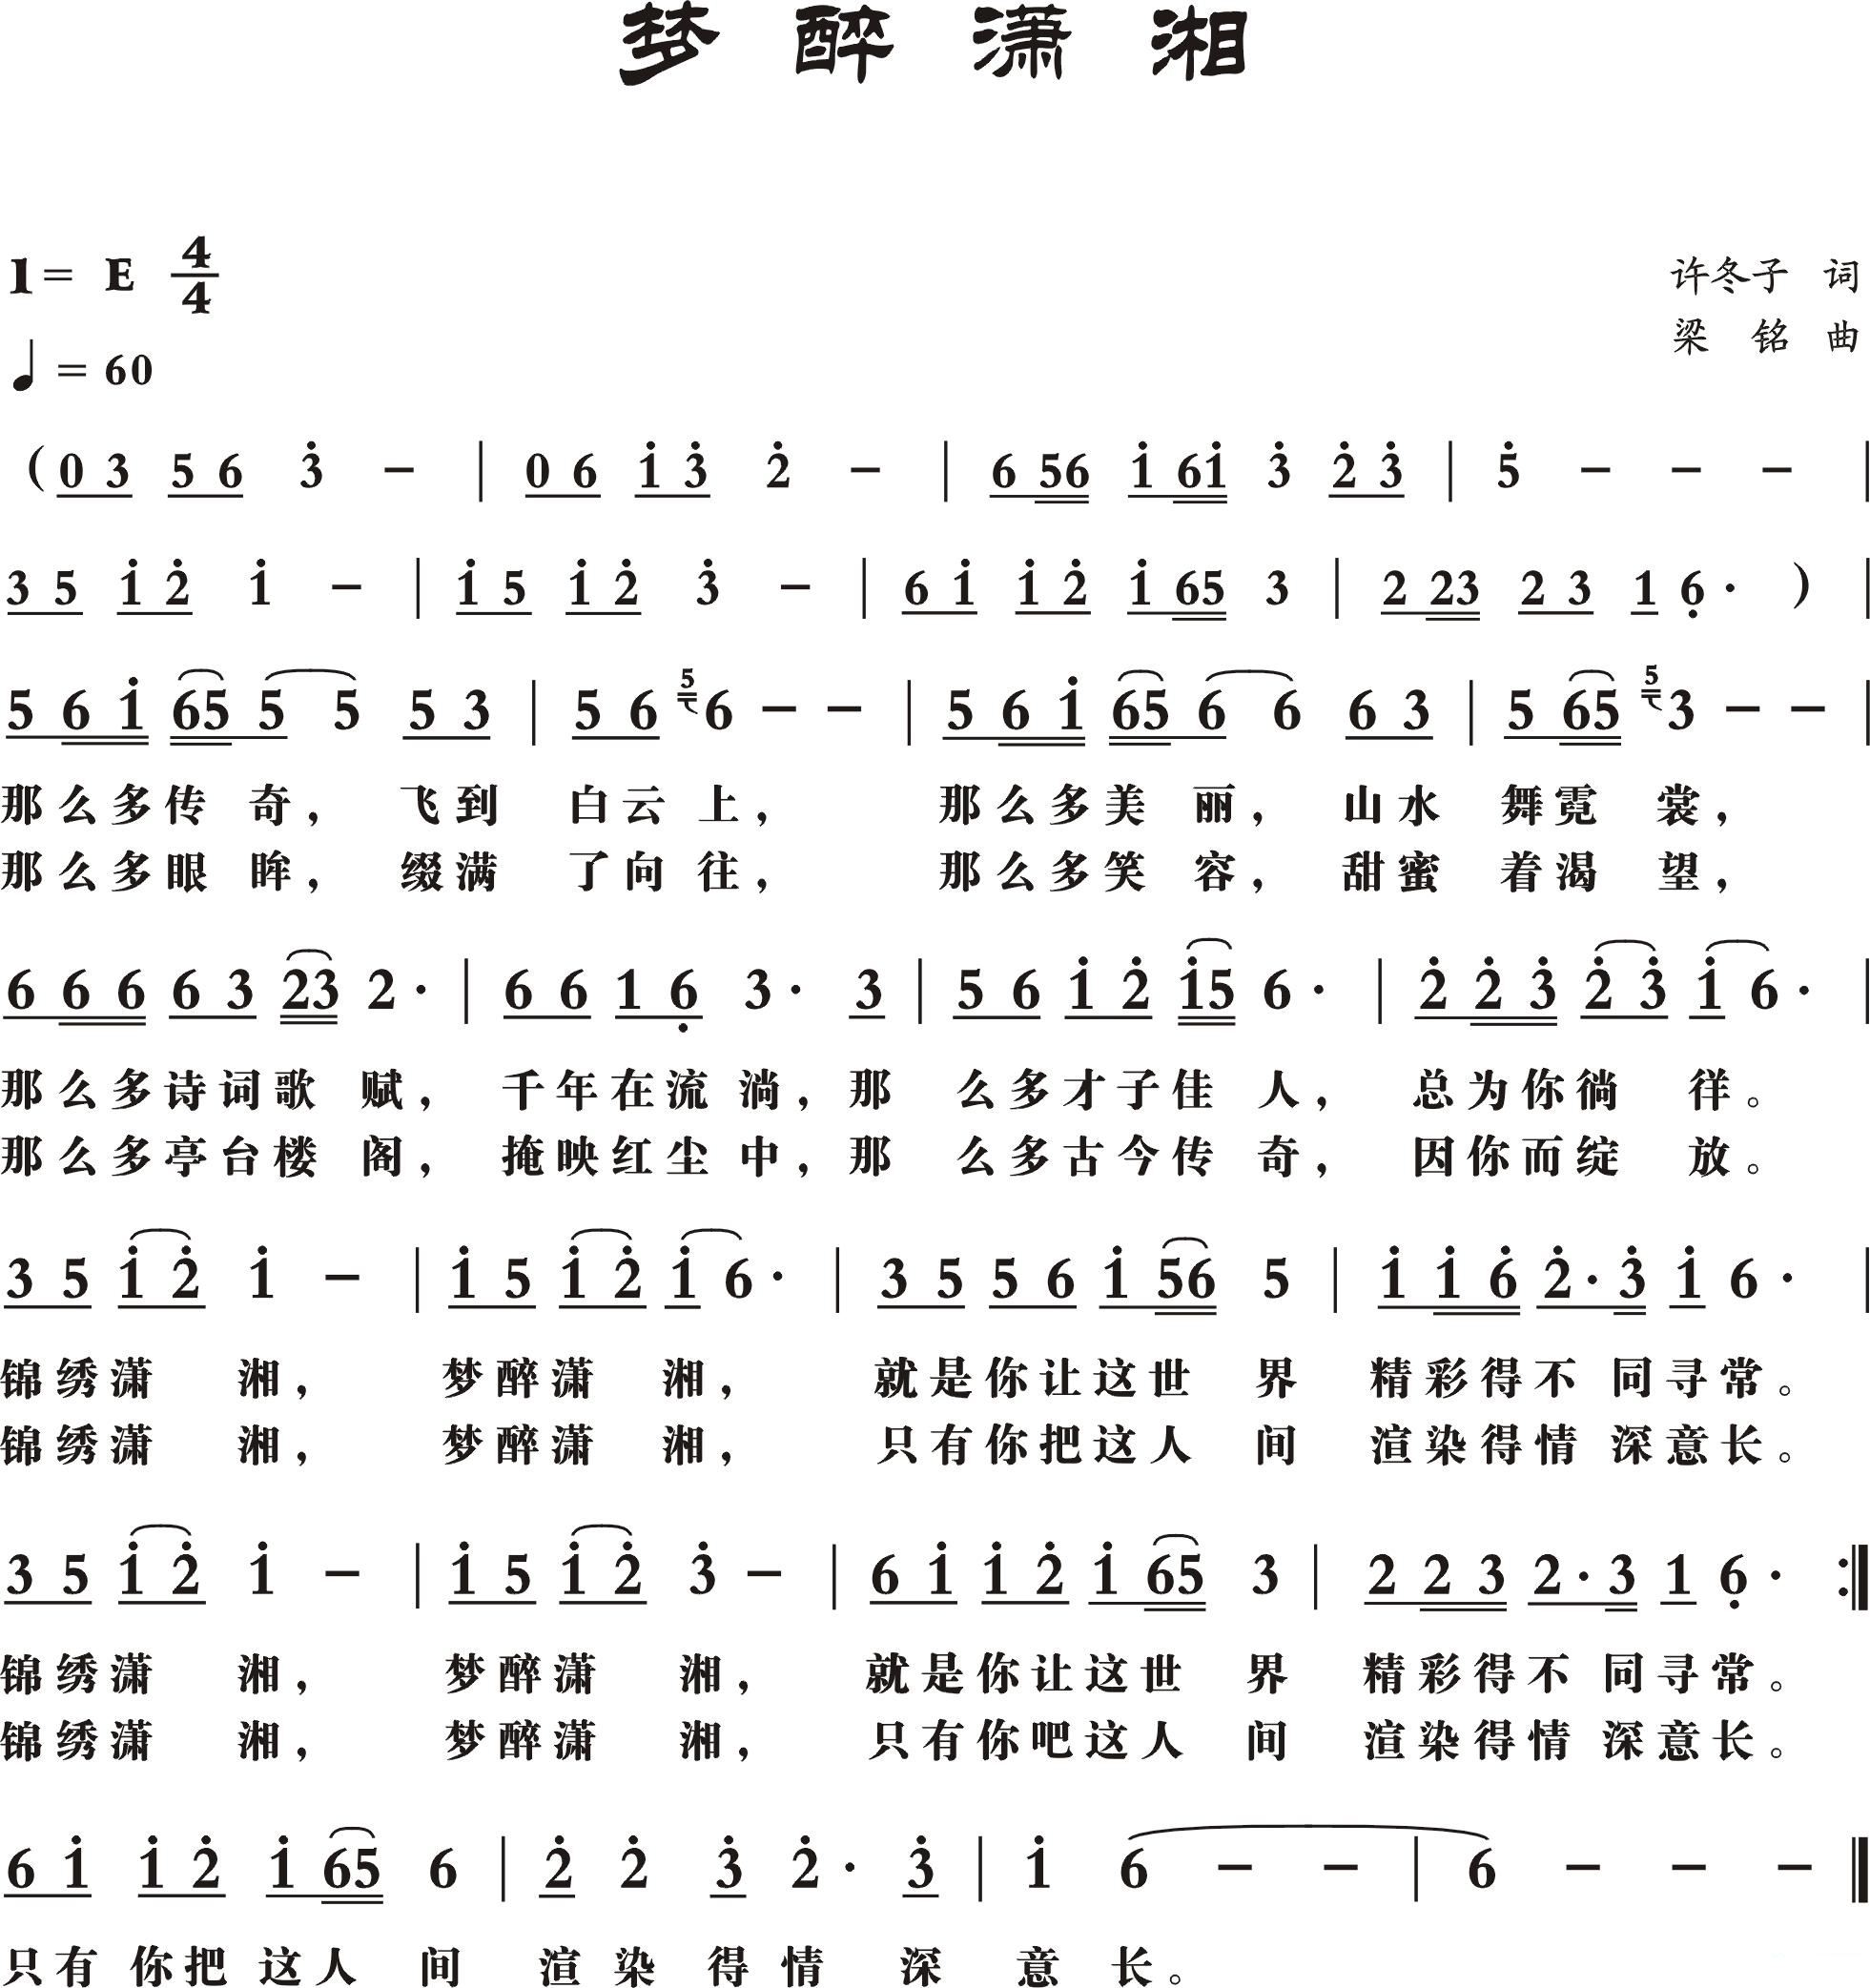 梦 醉 潇 湘
1= E 4/4
许冬子 词
♩ = 60
梁 铭 曲
( 0 3 5 6 3̇ – | 0 6 1̇ 3̇ 2̇ – | 6 56 1̇ 61̇ 3̇ 2̇ 3̇ | 5̇ – – – |
3 5 1̇ 2̇ 1̇ – | 1̇ 5 1̇ 2̇ 3̇ – | 6 1̇ 1̇ 2̇ 1̇ 65 3 | 2 23 2 3 1 6̣ · ) |
5 6 1̇ 65 5 5 5 3 | 5 6 5 6 – – | 5 6 1̇ 65 6 6 6 3 | 5 65 5 3 – – |
那么多传 奇, 飞到 白云 上, 那么多美 丽, 山水 舞霓 裳,
那么多眼 眸, 缀满 了向 往, 那么多笑 容, 甜蜜 着渴 望,
6 6 6 6 3 23 2 · | 6 6 1 6̣ 3 · 3 | 5 6 1̇ 2̇ 1̇5 6 · | 2̇ 2̇ 3̇ 2̇ 3̇ 1̇ 6 · |
那么多诗词歌 赋, 千年在流 淌,那 么多才子佳 人, 总为你徜 徉。
那么多亭台楼 阁, 掩映红尘 中,那 么多古今传 奇, 因你而绽 放。
3 5 1̇ 2̇ 1̇ – | 1̇ 5 1̇ 2̇ 1̇ 6 · | 3 5 5 6 1̇ 56 5 | 1̇ 1̇ 6̇ 2̇ · 3̇ 1̇ 6 · |
锦绣潇 湘, 梦醉潇 湘, 就是你让这世 界 精彩得不 同寻常。
锦绣潇 湘, 梦醉潇 湘, 只有你把这人 间 渲染得情 深意长。
3 5 1̇ 2̇ 1̇ – | 1̇ 5 1̇ 2̇ 3̇ – | 6 1̇ 1̇ 2̇ 1̇ 65 3 | 2 2 3 2 · 3 1 6̣ · :‖
锦绣潇 湘, 梦醉潇 湘, 就是你让这世 界 精彩得不 同寻常。
锦绣潇 湘, 梦醉潇 湘, 只有你吧这人 间 渲染得情 深意长。
6 1̇ 1̇ 2̇ 1̇ 65 6 | 2̇ 2̇ 3̇ 2̇ · 3̇ | 1̇ 6 – – | 6 – – – ‖
只有 你把 这人 间 渲 染 得 情 深 意 长。